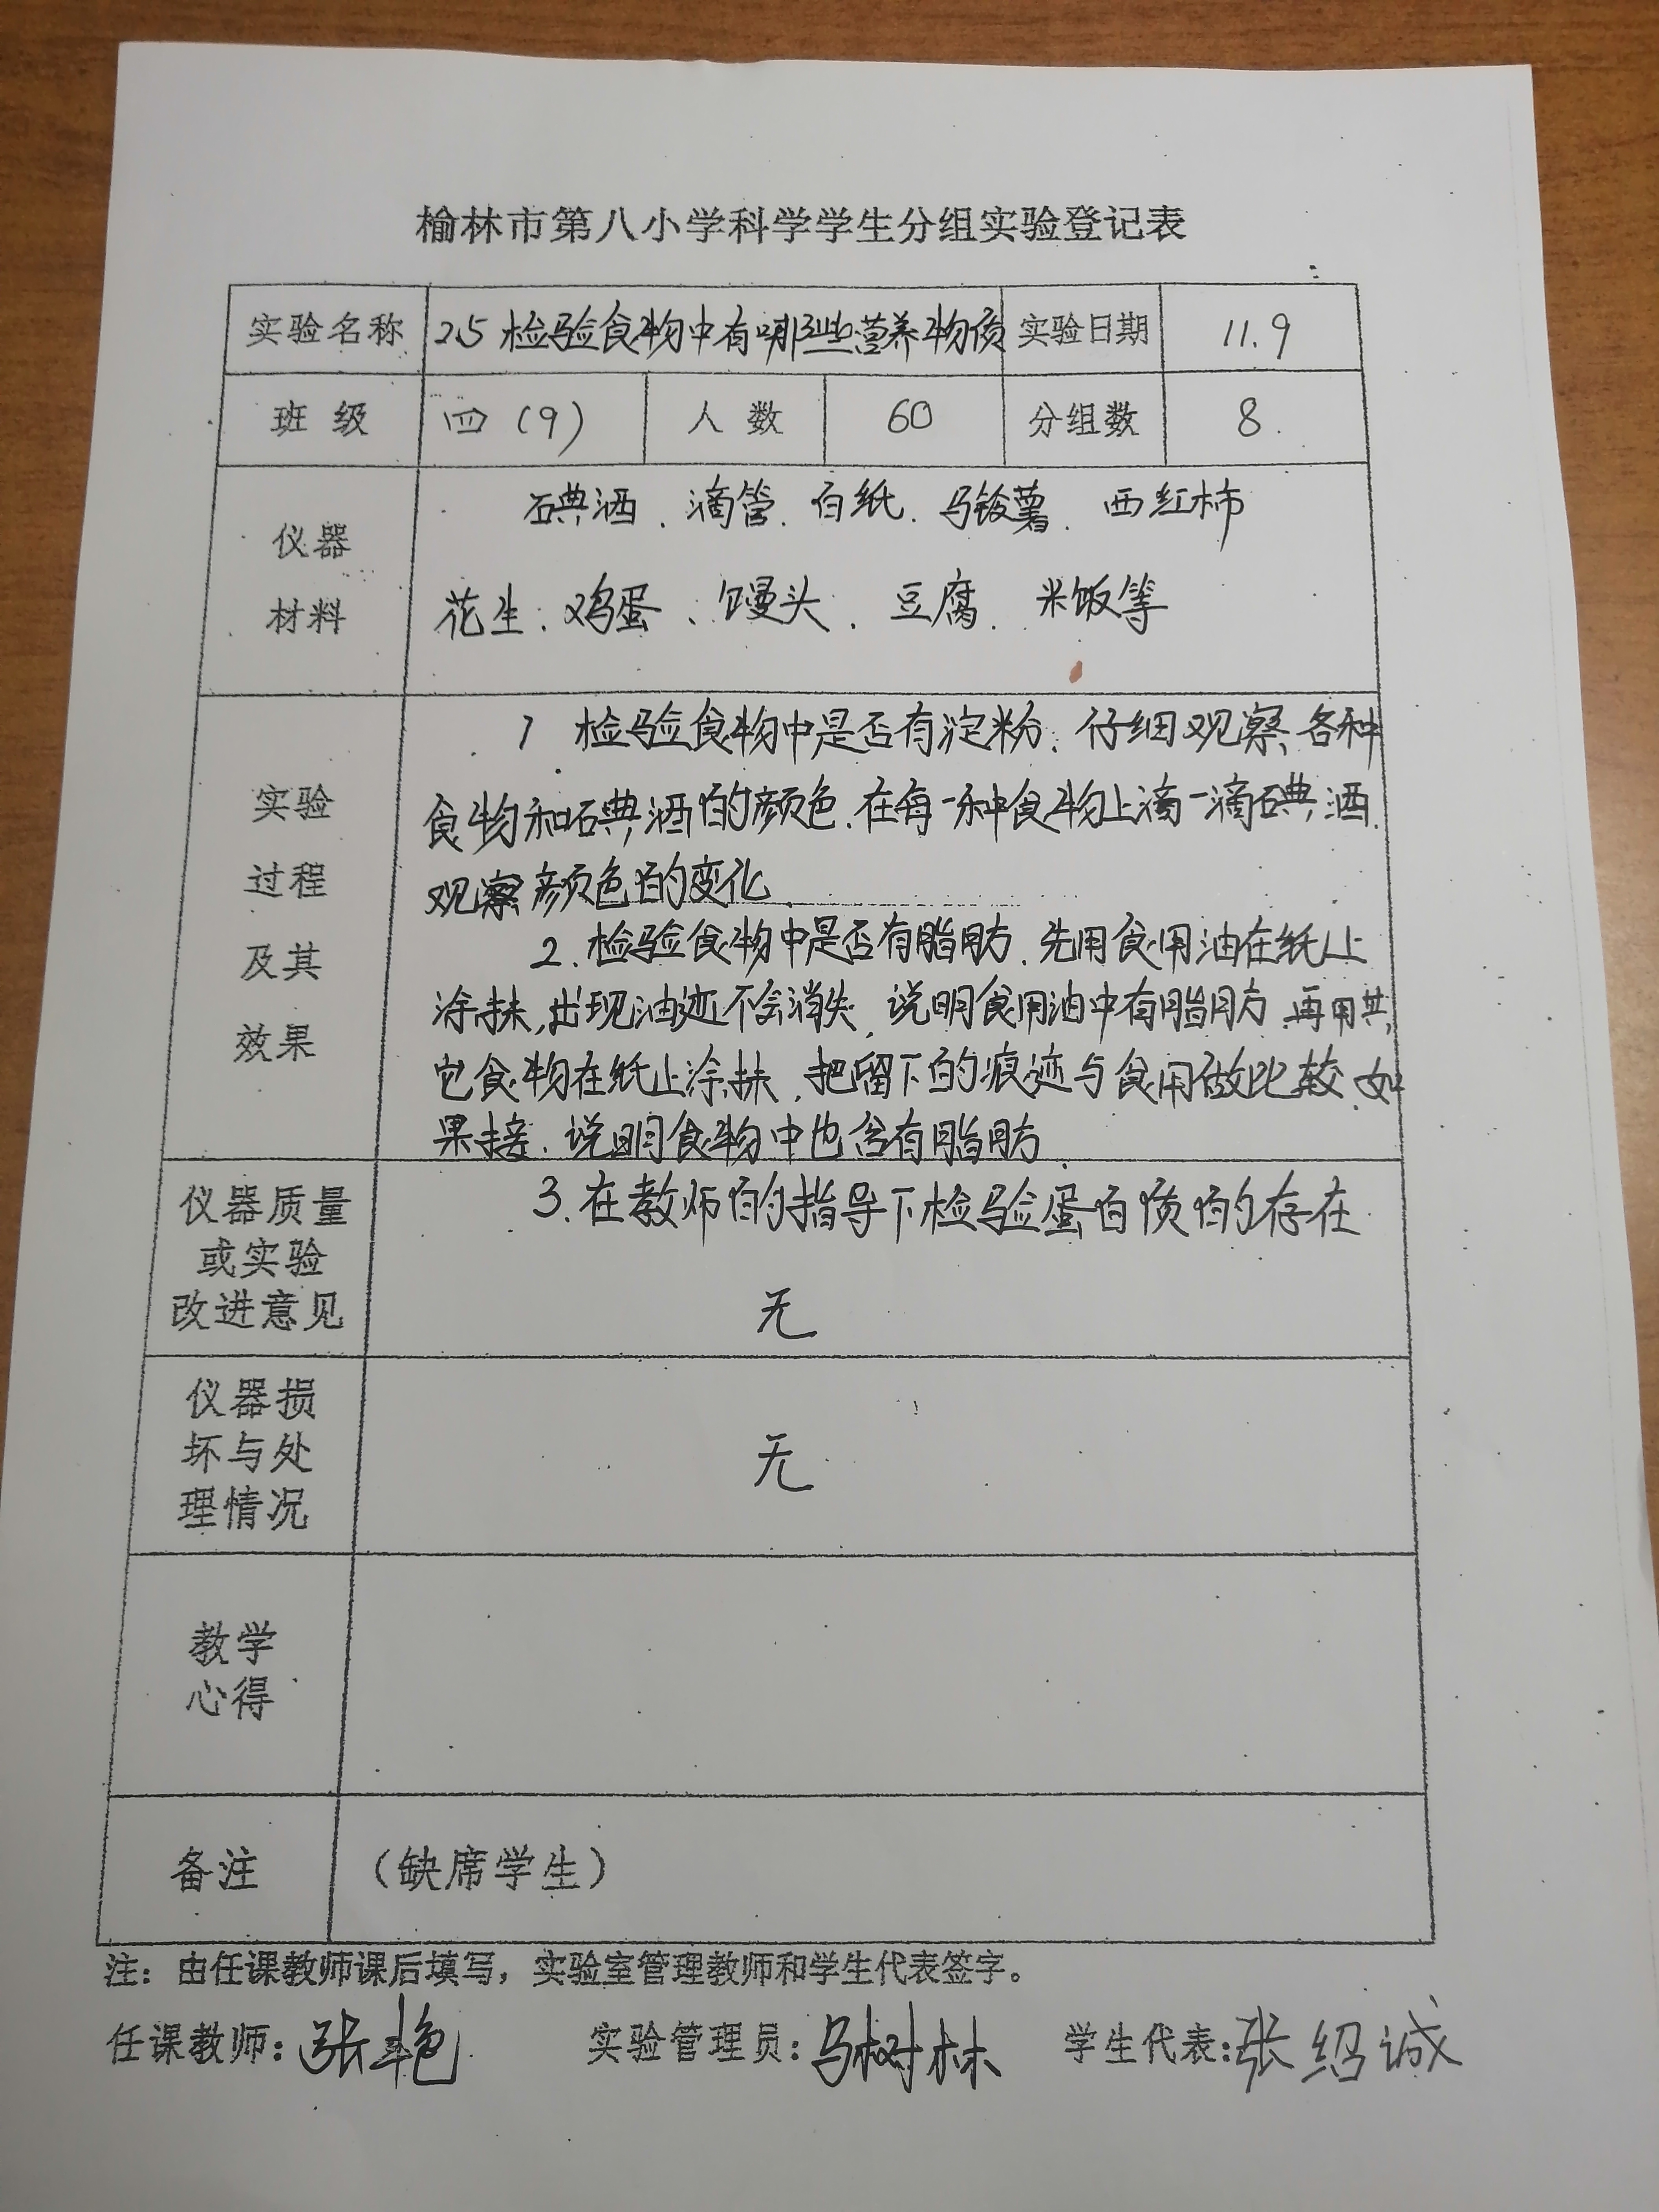 榆林市第八小学科学学生分组实验登记表
实验名称 2.5 检验食物中有哪些营养物质 实验日期 11.9
班 级 四（9） 人 数 60 分组数 8.
仪器
材料
碘酒、滴管、白纸、马铃薯、西红柿
花生、鸡蛋、馒头、豆腐、米饭等
实验
过程
及其
效果
1 检验食物中是否有淀粉.仔细观察各种
食物和碘酒的颜色.在每一种食物上滴一滴碘酒.
观察颜色的变化
2.检验食物中是否有脂肪.先用食用油在纸上
涂抹,出现油迹不会消失,说明食用油中有脂肪.再用其
它食物在纸上涂抹,把留下的痕迹与食用做比较.如
果接.说明食物中也含有脂肪.
仪器质量
或实验
改进意见
3.在教师的指导下检验蛋白质的存在
无
仪器损
坏与处
理情况
无
教学
心得
备注 （缺席学生）
注：由任课教师课后填写，实验室管理教师和学生代表签字。
任课教师：张艳 实验管理员：马树林 学生代表：张绍诚